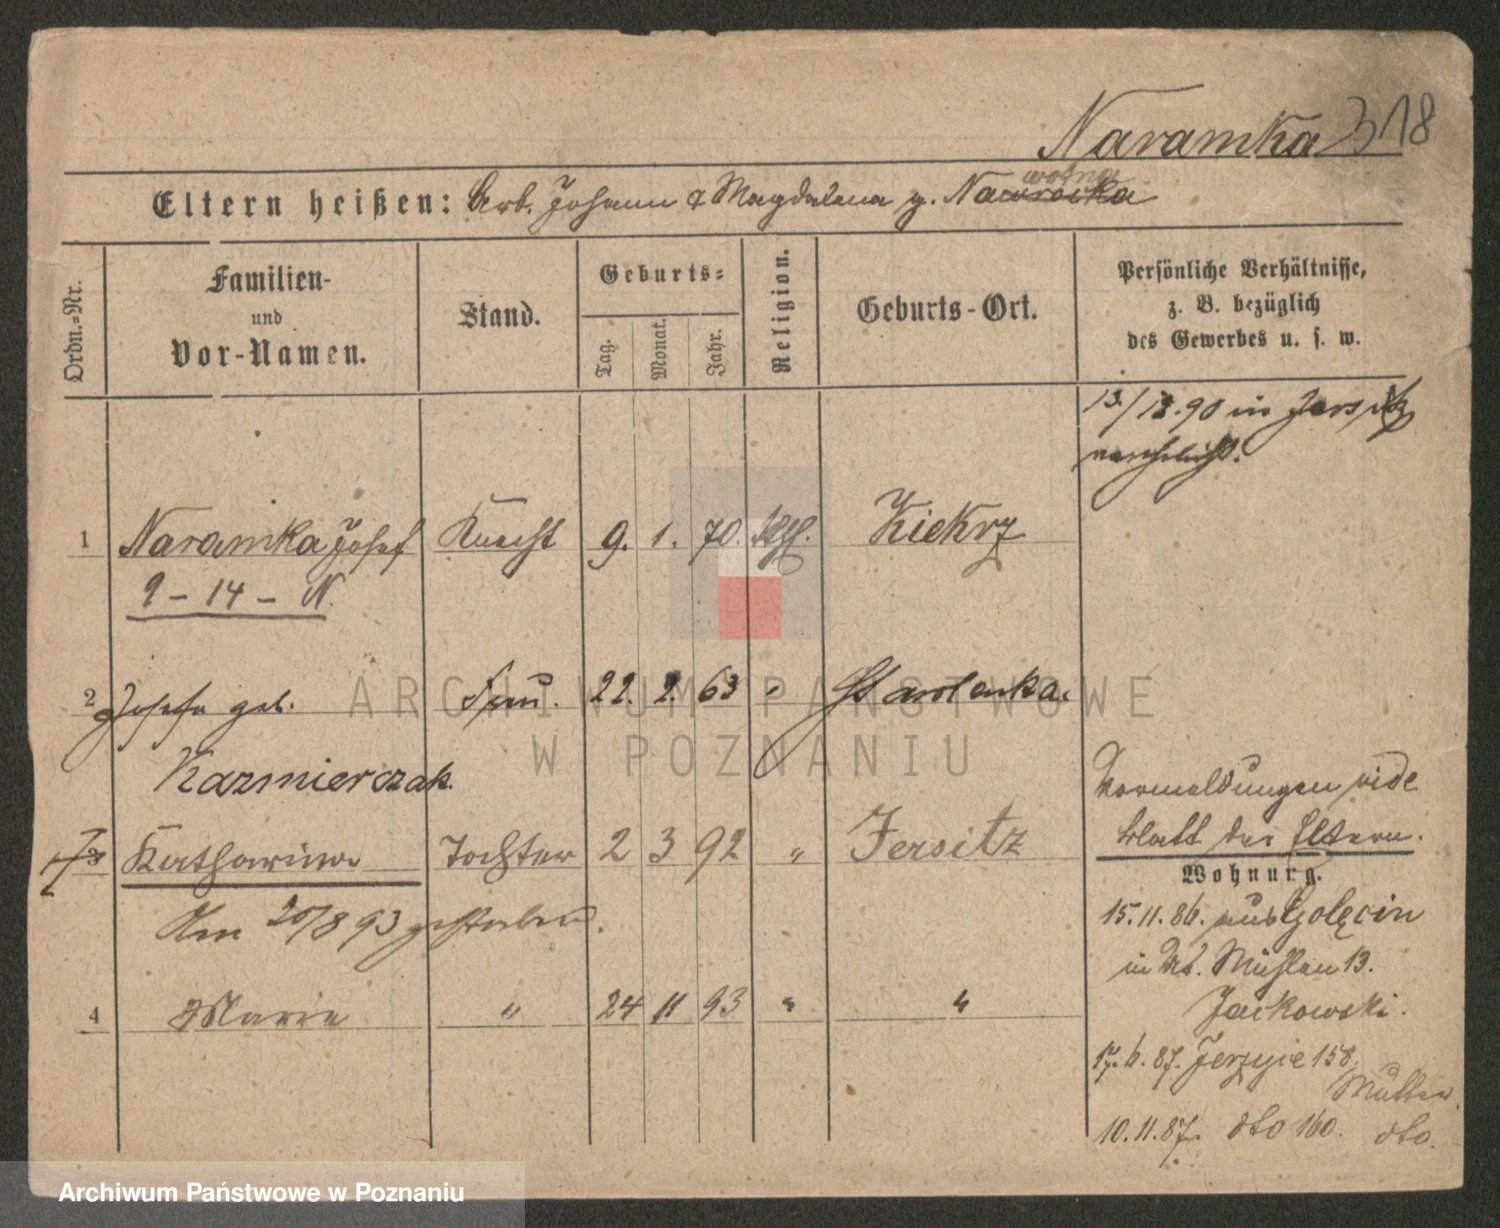 Naramka 318
Eltern heißen: Arb. Johann & Magdalena g. Nawrocka
Ordn.=Nr.
Familien-
und
Vor-Namen.
Stand.
Geburts=
Tag. Monat. Jahr.
Religion.
Geburts-Ort.
Persönliche Verhältnisse,
z. B. bezüglich
des Gewerbes u. s. w.
in Jersitz
verehelicht.
1 Naramka Josef Knecht 9. 1. 70. kth. Kiekrz
9 - 14 - N.
2 Josefa geb. Frau. 22. 2. 63 " Starolenka.
Kazmierczak.
3 Katharina Tochter 2 3 92 " Jersitz
Am 20/8 93 gestorben.
4 Marie " 24 11 93 " "
Vormeldungen vide
Blatt der Eltern.
Wohnung.
15.11.86. aus Golęcin
in St. Mühlen 13.
Jackowski.
17.6.87. Jerzyce 158.
Mutter.
10.11.87. dto 160. dto.
ARCHIWUM PAŃSTWOWE
W POZNANIU
Archiwum Państwowe w Poznaniu